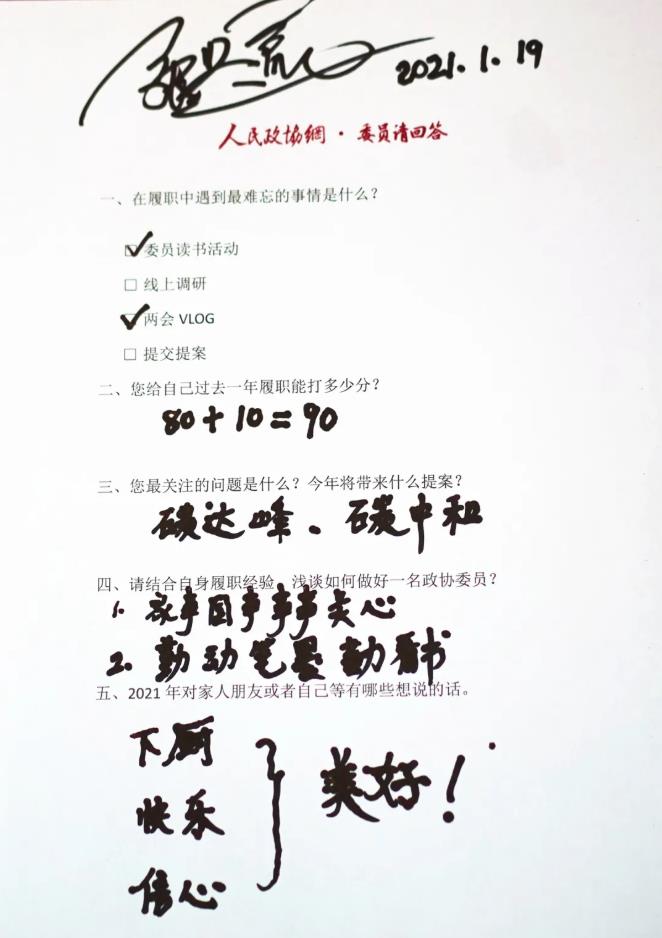 2021.1.19
人民政協網·委员请回答
一、在履职中遇到最难忘的事情是什么？
委员读书活动
□ 线上调研
两会 VLOG
□ 提交提案
二、您给自己过去一年履职能打多少分？
80+10=90
三、您最关注的问题是什么？今年将带来什么提案？
碳达峰、碳中和
四、请结合自身履职经验，浅谈如何做好一名政协委员？
1. 家事国事事事关心
2. 勤动笔墨勤看书
五、2021 年对家人朋友或者自己等有哪些想说的话。
下厨
快乐
信心
美好！